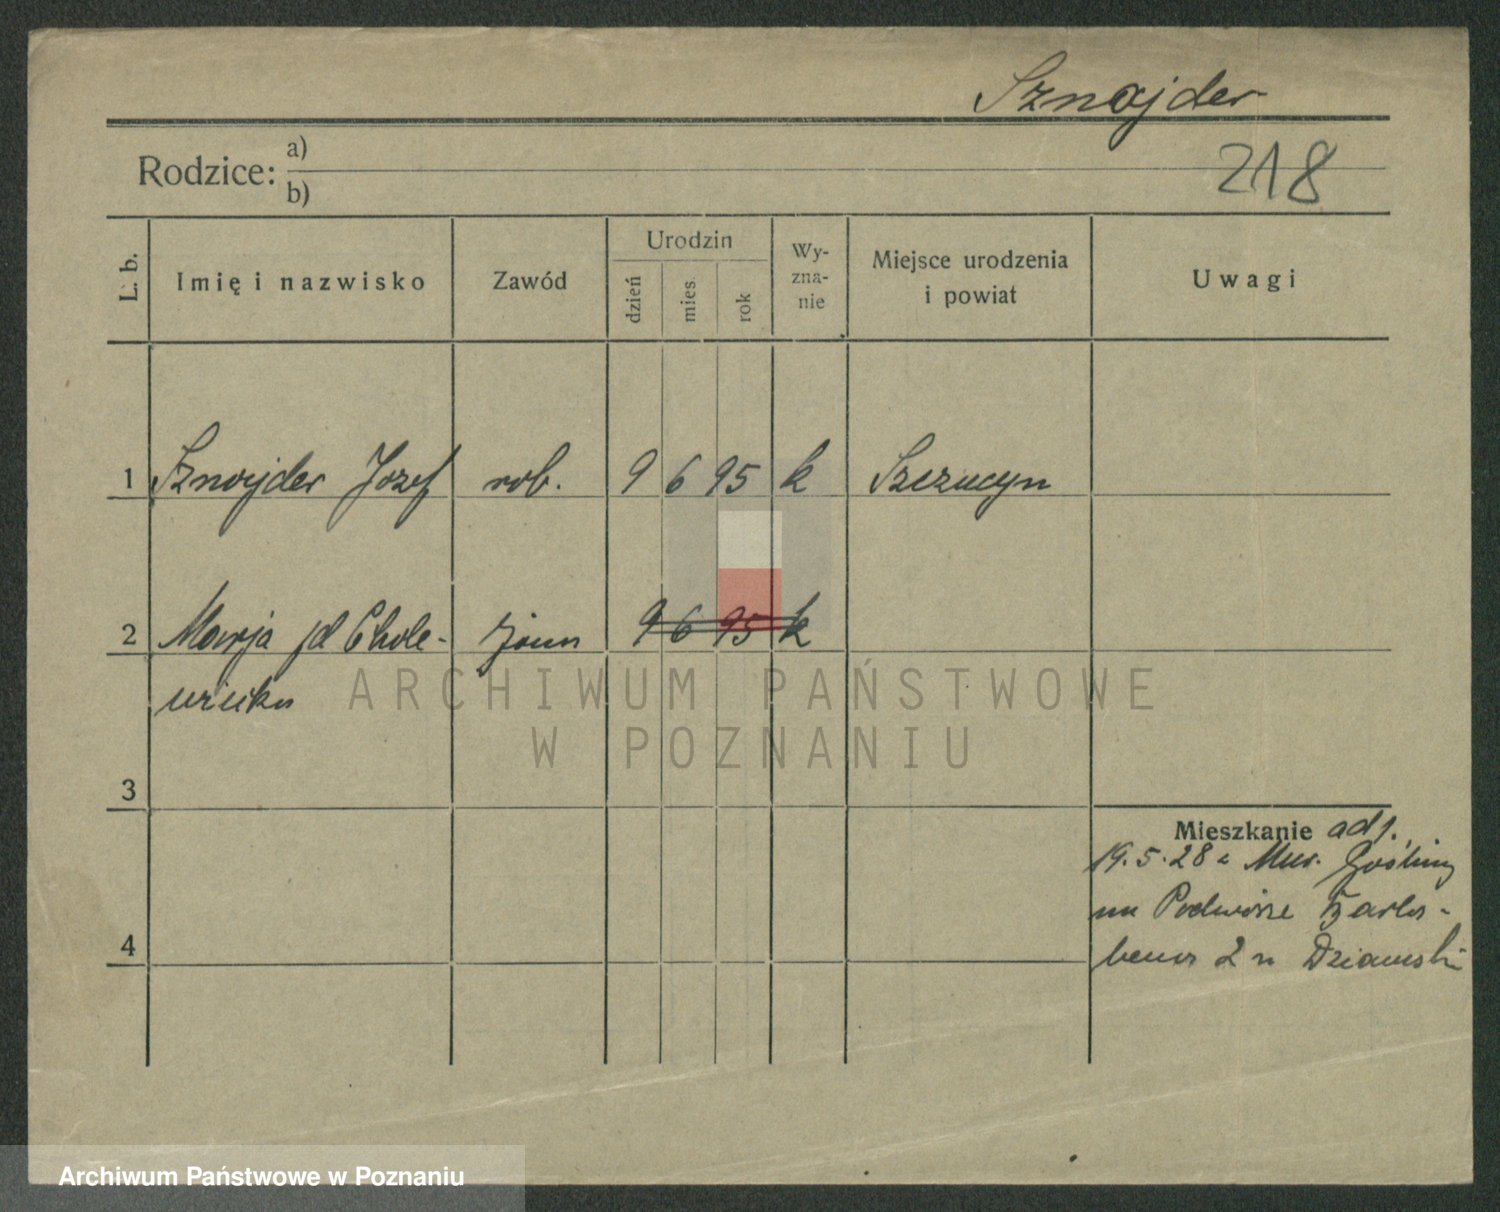 Sznajder
218
Rodzice: a)
b)
L. b. Imię i nazwisko Zawód Urodzin dzień mies. rok Wy-zna-nie Miejsce urodzenia i powiat Uwagi
1 Sznajder Józef rob. 9 6 95 k Szczucyn
2 Marja Chole- 9 6 95 k
3
4
Mieszkanie adj.
19.5.28 Mur. Gośliny
Podwórze
2 Dziamski
ARCHIWUM PAŃSTWOWE
W POZNANIU
Archiwum Państwowe w Poznaniu